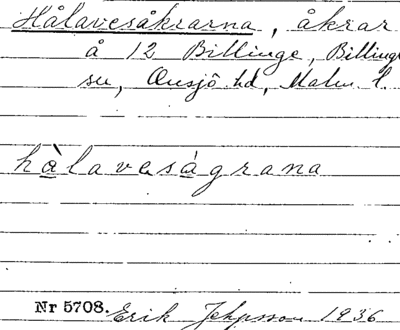 Hålavesåkrarna, åkrar
å 12 Billinge, Billinge
sn, Onsjö hd, Malm. l.
hàlaveságrana
Nr 5708. Erik Jeppsson 1936